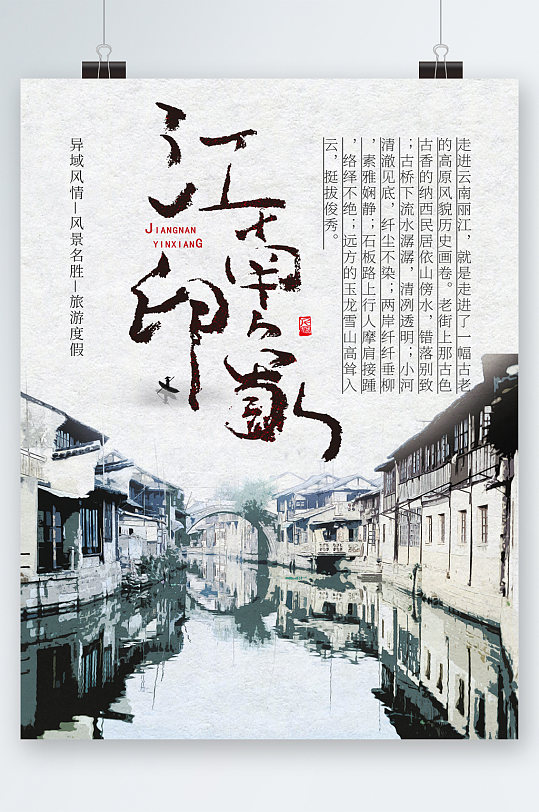 江南印象
JIANGNAN
YINXIANG
走进云南丽江，就是走进了一幅古老
的高原风貌历史画卷。老街上那古色
古香的纳西民居依山傍水，错落别致
；古桥下流水潺潺，清冽透明；小河
清澈见底，纤尘不染；两岸纤纤垂柳
，素雅娴静；石板路上行人摩肩接踵
，络绎不绝；远方的玉龙雪山高耸入
云，挺拔俊秀。
异域风情—风景名胜—旅游度假